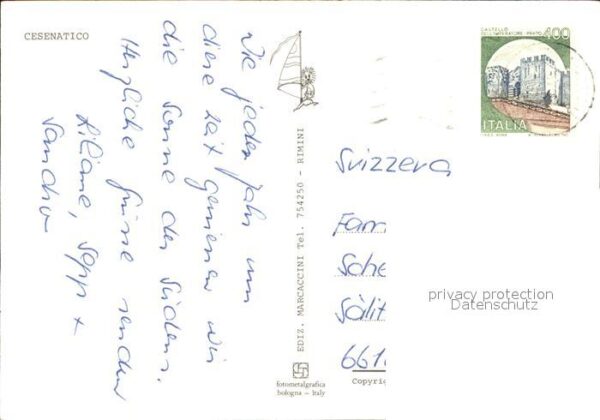 CESENATICO
Wie jedes Jahr um
diese Zeit geniessen wir
die Sonne des Südens.
Herzliche Grüsse senden
Liliane, Sepp +
Sandro
EDIZ. MARCACCINI Tel. 754250 - RIMINI
fotometalgrafica
bologna - Italy
CASTELLO
DELL'IMPERATORE - PRATO
400
ITALIA
Svizzera
Fam
Sche
Sälit
661
Copyri
privacy protection
Datenschutz